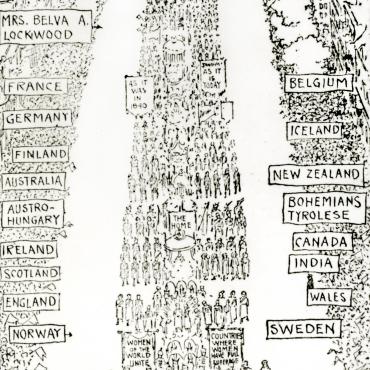 MRS. BELVA A.
LOCKWOOD
FRANCE
GERMANY
FINLAND
AUSTRALIA
AUSTRO-
HUNGARY
IRELAND
SCOTLAND
ENGLAND
NORWAY
AS IT
WAS IN
1840
AS IT
IS TODAY
THE
HOME
WOMEN
OF THE
WORLD
UNITE
COUNTRIES
WHERE
WOMEN
HAVE FULL
SUFFRAGE
BELGIUM
ICELAND
NEW ZEALAND
BOHEMIANS
TYROLESE
CANADA
INDIA
WALES
SWEDEN